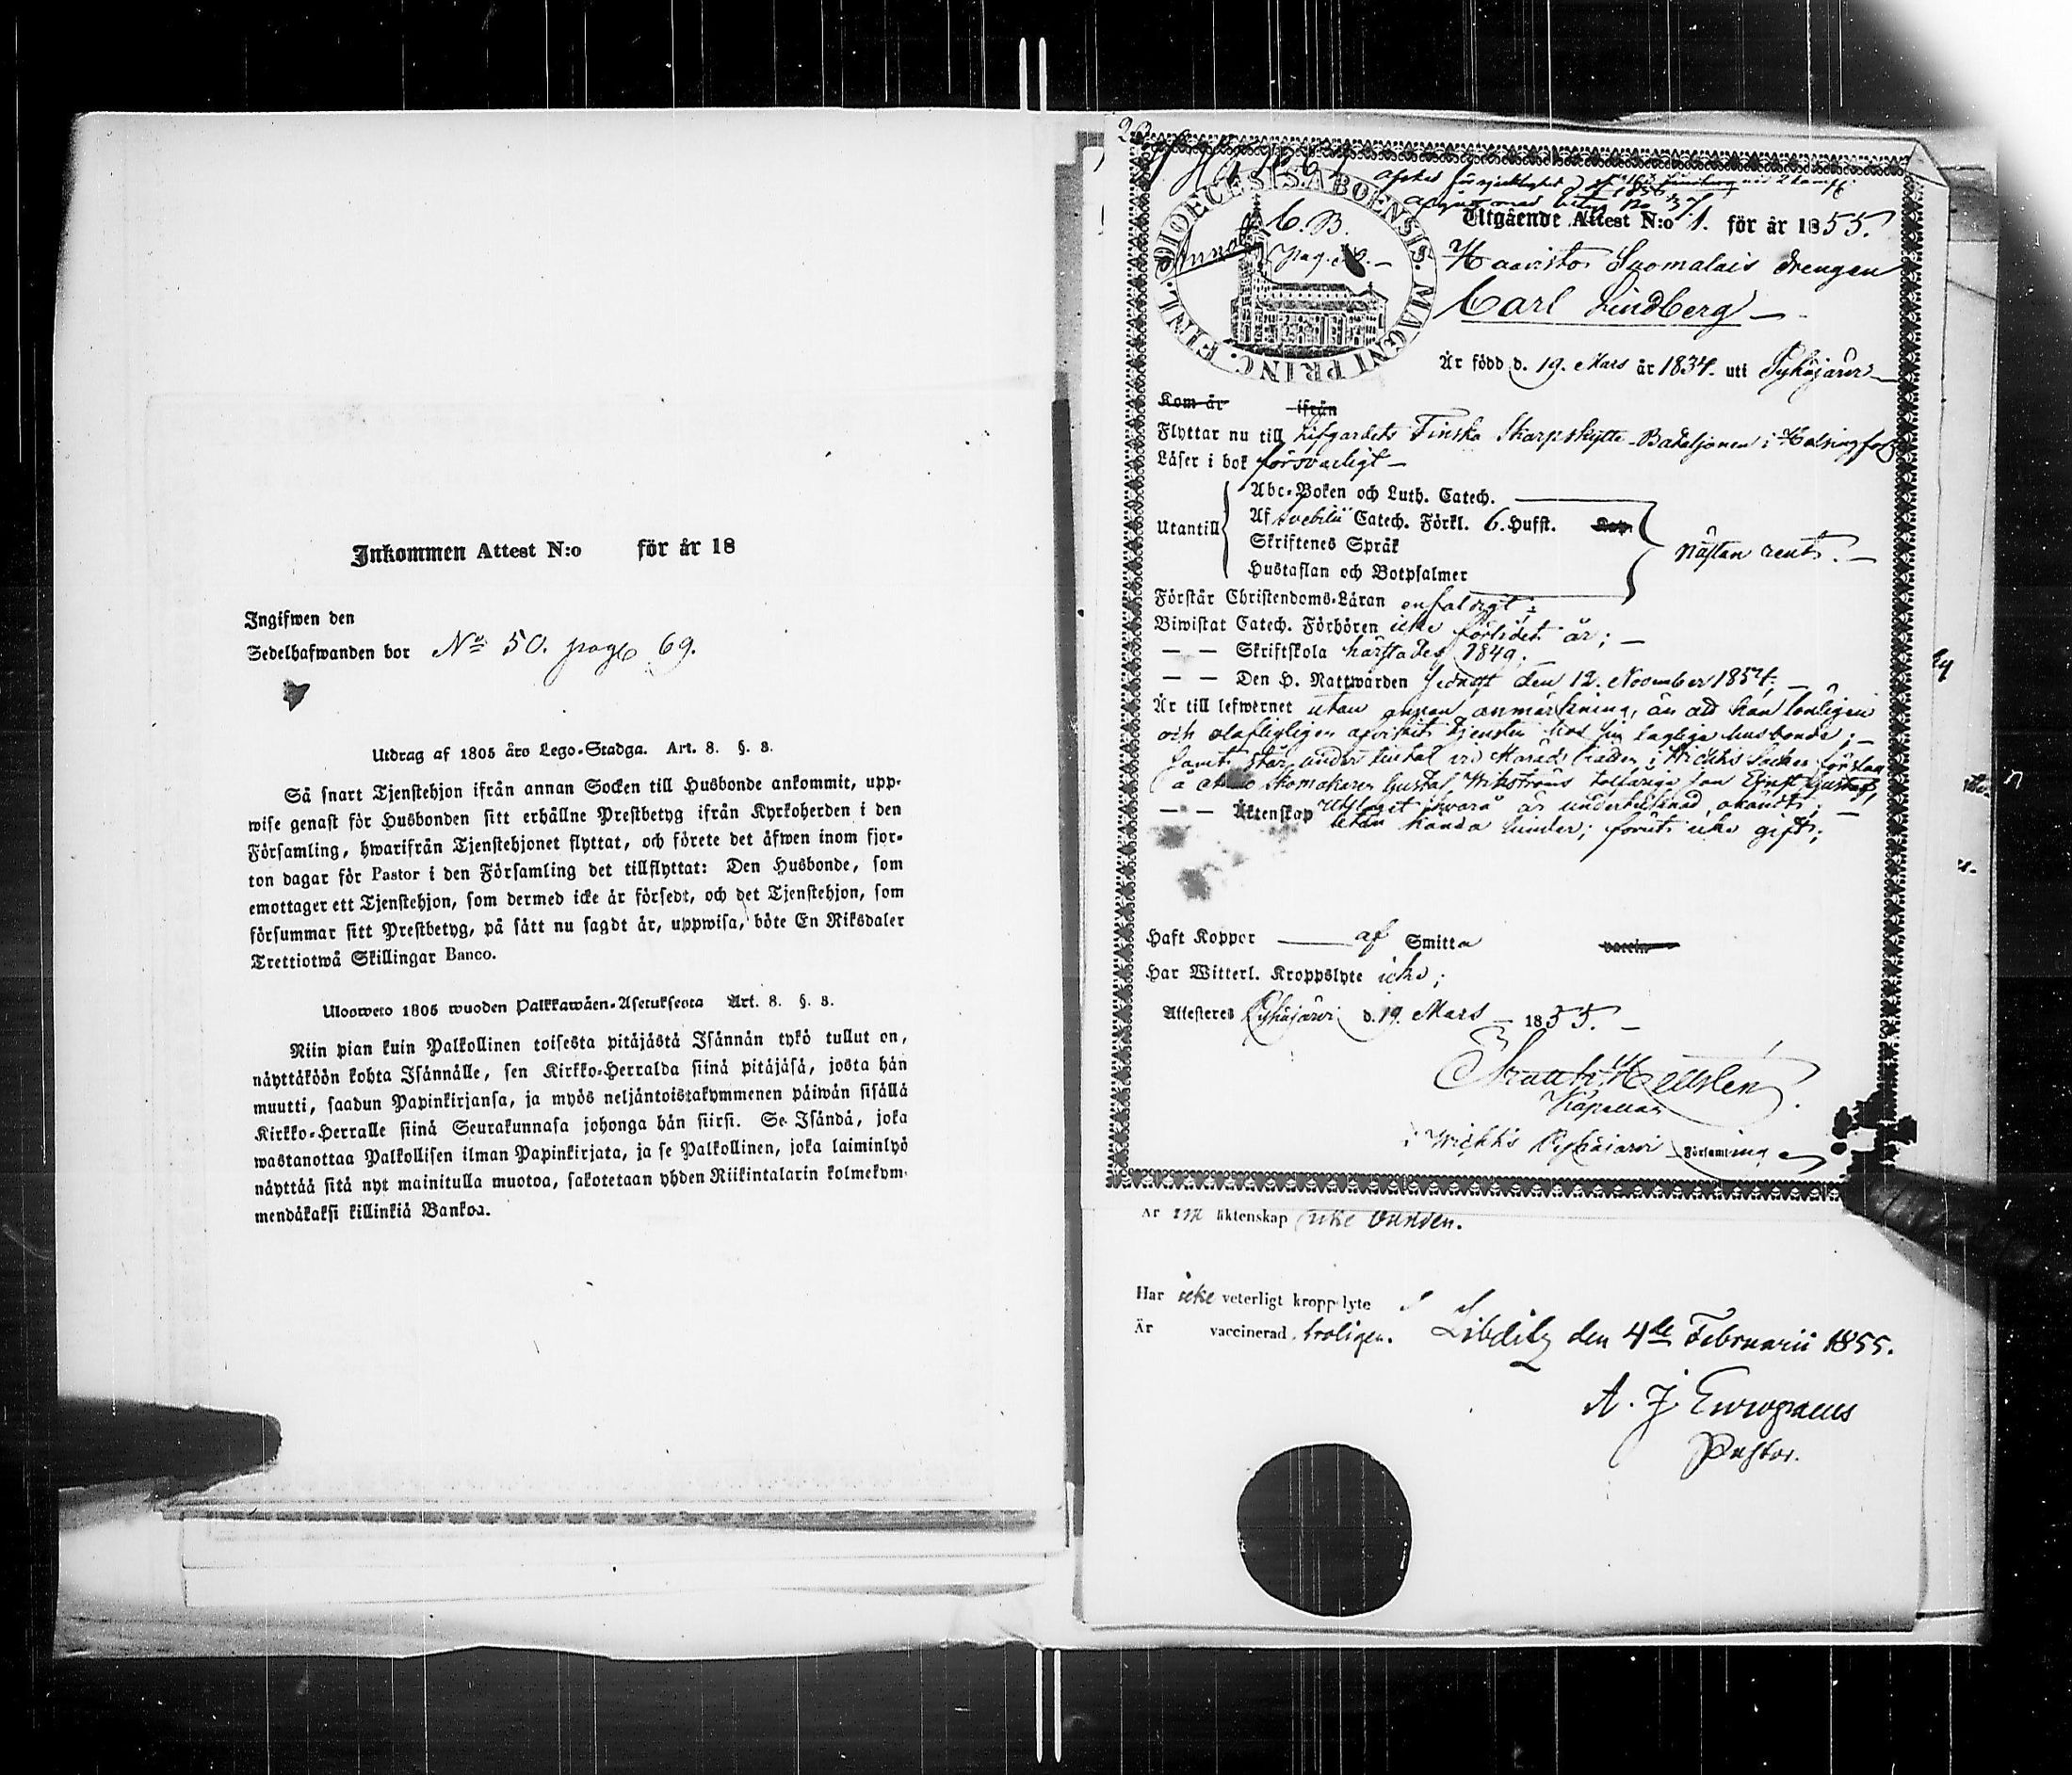 Inkommen Attest N:o för år 18
Ingifwen den
Sedelhafwanden bor No 50. page 69.
Utdrag af 1805 års Lego-Stadga. Art. 8. §. 8.
Så snart Tjenstehjon ifrån annan Socken till Husbonde ankommit, upp-
wise genast för Husbonden sitt erhållne Prestbetyg ifrån Kyrkoherden i den
Församling, hwarifrån Tjenstehjonet flyttat, och förete det äfwen inom fjor-
ton dagar för Pastor i den Församling det tillflyttat: Den Husbonde, som
emottager ett Tjenstehjon, som dermed icke är försedt, och det Tjenstehjon, som
försummar sitt Prestbetyg, på sätt nu sagdt är, uppwisa, böte En Riksdaler
Trettiotwå Skillingar Banco.
Ulosweto 1805 wuoden Palkkawäen-Asetuksesta Art. 8. §. 8.
Niin pian kuin Palkollinen toisesta pitäjästä Isännän tykö tullut on,
näyttäköön kohta Isännälle, sen Kirkko-Herralda siinä pitäjäsä, josta hän
muutti, saadun Papinkirjansa, ja myös neljäntoistakymmenen päiwän sisällä
Kirkko-Herralle siinä Seurakunnasa johonga hän siirsi. Se Isändä, joka
wastanottaa Palkollisen ilman Papinkirjata, ja se Palkollinen, joka laiminlyö
näyttää sitä nyt mainitulla muotoa, sakotetaan yhden Riikintalarin kolmekym-
mendäkaksi killinkiä Bankoa.
DIOECESIS ABOENSIS. MAGNI PRINC. FINL.
C. B.
pag.
Utgående Attest N:o 1. för år 1855.
Haavisto Suomalais drengen
Carl Lindberg
Är född d. 19. Mars år 1834. uti Pyhäjärvi
Kom år ifrån
Flyttar nu till Lifgardets Finska Skarpskytte-Bataljonen i Helsingfors
Läser i bok försvarligt
Utantill
Abc-Boken och Luth. Catech.
Af Svebilii Catech. Förkl. 6. Hufst.
Skriftenes Språk
Hustaflan och Botpsalmer
nästan rent.
Förstår Christendoms-Läran enfaldigt;
Biwistat Catech. Förhören icke förlidet år;
— — Skriftskola härstädes 1849;
— — Den H. Nattwarden senast den 12. November 1854;
Är till lefwernet utan annan anmärkning, än att han lönligen
och olofligligen afvikit tjensten hos sin laglige husbonde;
samt står under tiltal vid Härads Rätten i Wichtis Socken för slag
å Skomakaren Gustaf Wikströms tolfåriga son Ernst Gustaf,
Utslaget hvarå är undertecknad okändt;
— — Äktenskap utan kända hinder; förut icke gift;
Haft Koppor af Smitta
Har Witterl. Kroppslyte icke;
Attesteres Pyhäjärvi d. 19. Mars 1855.
Kapellan
i Wichtis Pyhäjärvi Församling
Är i äktenskap icke bunden.
Har icke veterligt kroppslyte
Är vaccinerad troligen. Libelitz den 4de Februarii 1855.
A. J. Europaeus
Pastor.